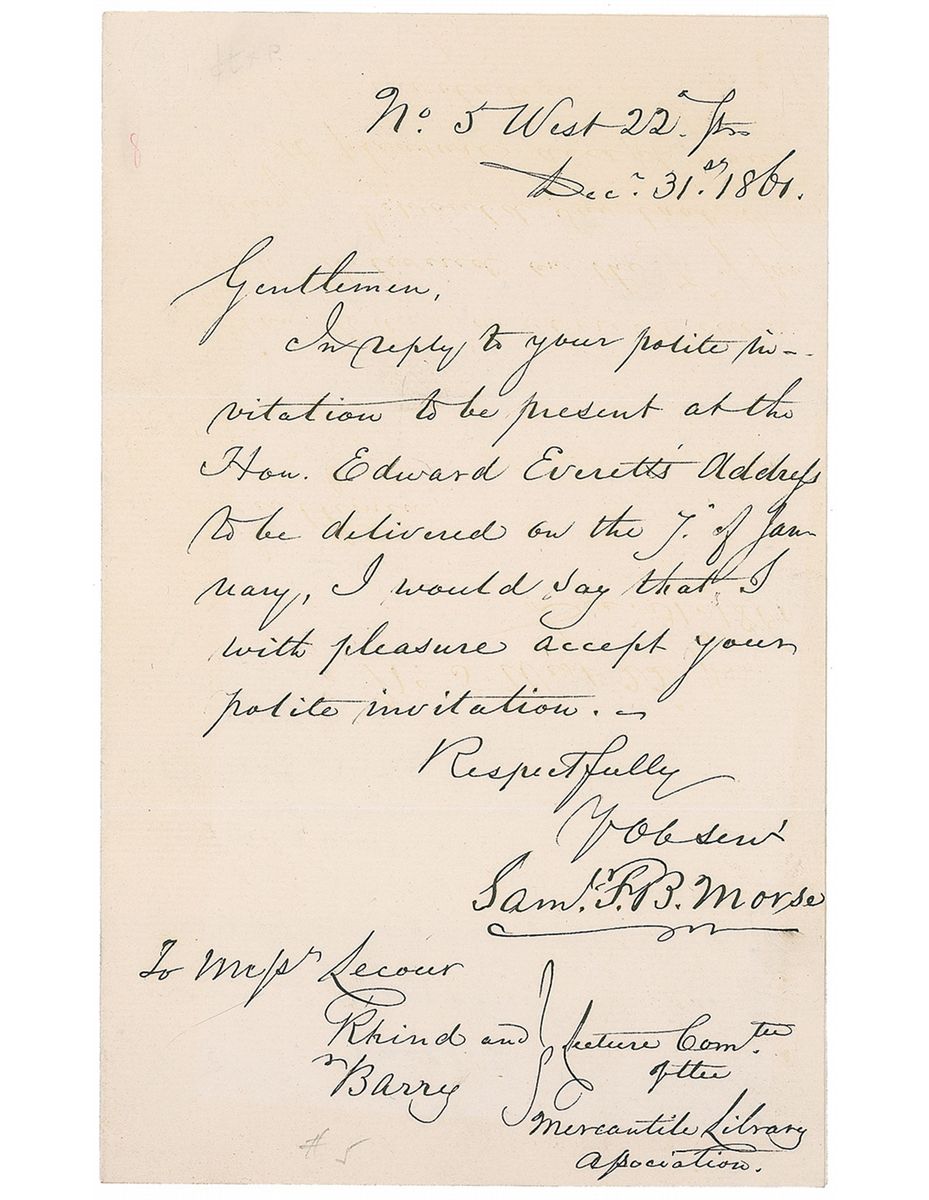 No. 5 West 22d. Str
Decr. 31st. 1861.
Gentlemen,
In reply to your polite in-
vitation to be present at the
Hon. Edward Everett's Address
to be delivered on the 7th of Jan-
uary, I would say that I
with pleasure accept your
polite invitation. -
Respectfully
Yr Ob serv't
Saml. F. B. Morse
To Messrs Lecour
Rhind and
Barry
Lecture Comtee.
of the
Mercantile Library
Association.
# 5
8